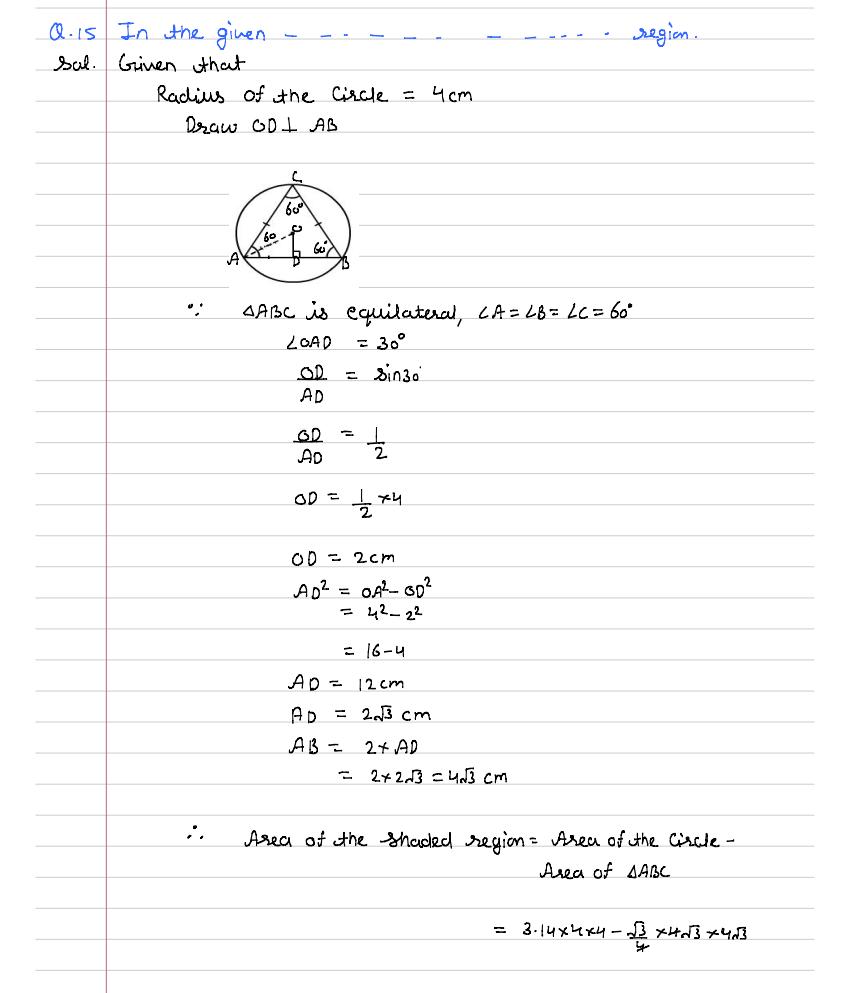 Q.15 In the given - - - - - - - - - - - - region.
Sol. Given that
Radius of the Circle = 4cm
Draw OD⊥ AB
C
60°
O
60
60°
A
D
B
∵ △ABC is equilateral, ∠A = ∠B = ∠C = 60°
∠OAD = 30°
OD/AD = Sin30°
OD/AD = 1/2
OD = 1/2 ×4
OD = 2cm
AD² = OA² - OD²
= 4² - 2²
= 16-4
AD = 12cm
AD = 2√3 cm
AB = 2× AD
= 2×2√3 = 4√3 cm
∴ Area of the shaded region = Area of the Circle -
Area of △ABC
= 3.14×4×4 - √3/4 ×4√3 ×4√3